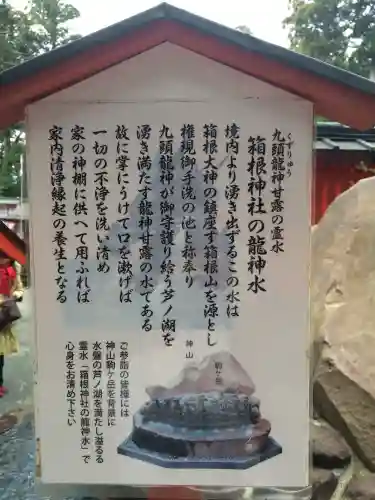 九頭龍神甘露の霊水
くずりゅう
箱根神社の龍神水
境内より湧き出ずるこの水は
箱根大神の鎮座す箱根山を源とし
権現御手洗の池と称奉り
九頭龍神が御守護り給う芦ノ湖を
湧き満たす龍神甘露の水である
故に掌にうけて口を漱げば
一切の不浄を洗い清め
家の神棚に供へて用ふれば
家内清浄縁起の養生となる
ご参詣の皆様には
神山駒ケ岳を目前に
水盤の芦ノ湖を満たし溢るる
霊水「箱根神社の龍神水」で
心身をお清め下さい
神山
駒ケ岳